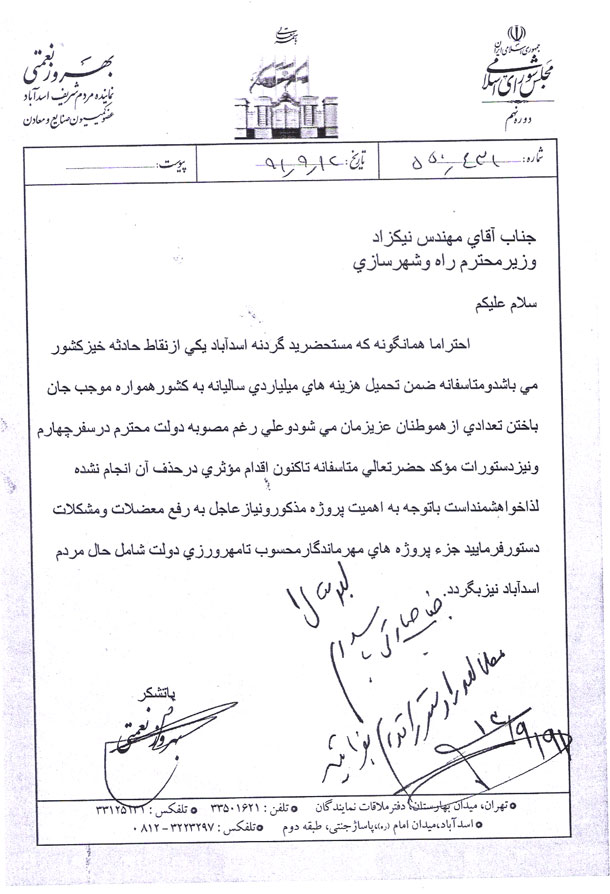 جمهوری اسلامی ایران
مجلس شورای اسلامی
دوره نهم
بهروز نعمتی
نماینده مردم شریف اسدآباد
عضو کمیسیون صنایع و معادن
شماره:
تاریخ: ۹۱٫۹٫۱۲
پیوست:
جناب آقاي مهندس نيكزاد
وزيرمحترم راه وشهرسازي
سلام عليكم
احتراما همانگونه كه مستحضريد گردنه اسدآباد يكي ازنقاط حادثه خيزكشور
مي باشدومتاسفانه ضمن تحميل هزينه هاي ميلياردي ساليانه به كشورهمواره موجب جان
باختن تعدادي ازهموطنان عزيزمان مي شودوعلي رغم مصوبه دولت محترم درسفرچهارم
ونيزدستورات مؤكد حضرتعالي متاسفانه تاكنون اقدام مؤثري درحذف آن انجام نشده
لذاخواهشمنداست باتوجه به اهميت پروژه مذكورونيازعاجل به رفع معضلات ومشكلات
دستورفرماييد جزء پروژه هاي مهرماندگارمحسوب تامهرورزي دولت شامل حال مردم
اسدآباد نيزبگردد.
باتشكر
بهروز نعمتی
۹۱/۹/۱۲
تهران، میدان بهارستان، دفتر ملاقات نمایندگان تلفن: ۳۳۵۰۱۶۲۱ تلفکس: ۳۳۱۲۵۱۳۱
اسدآباد، میدان امام (ره)، پاساژ جنتی، طبقه دوم تلفکس: ۳۲۲۳۲۹۷-۰۸۱۲